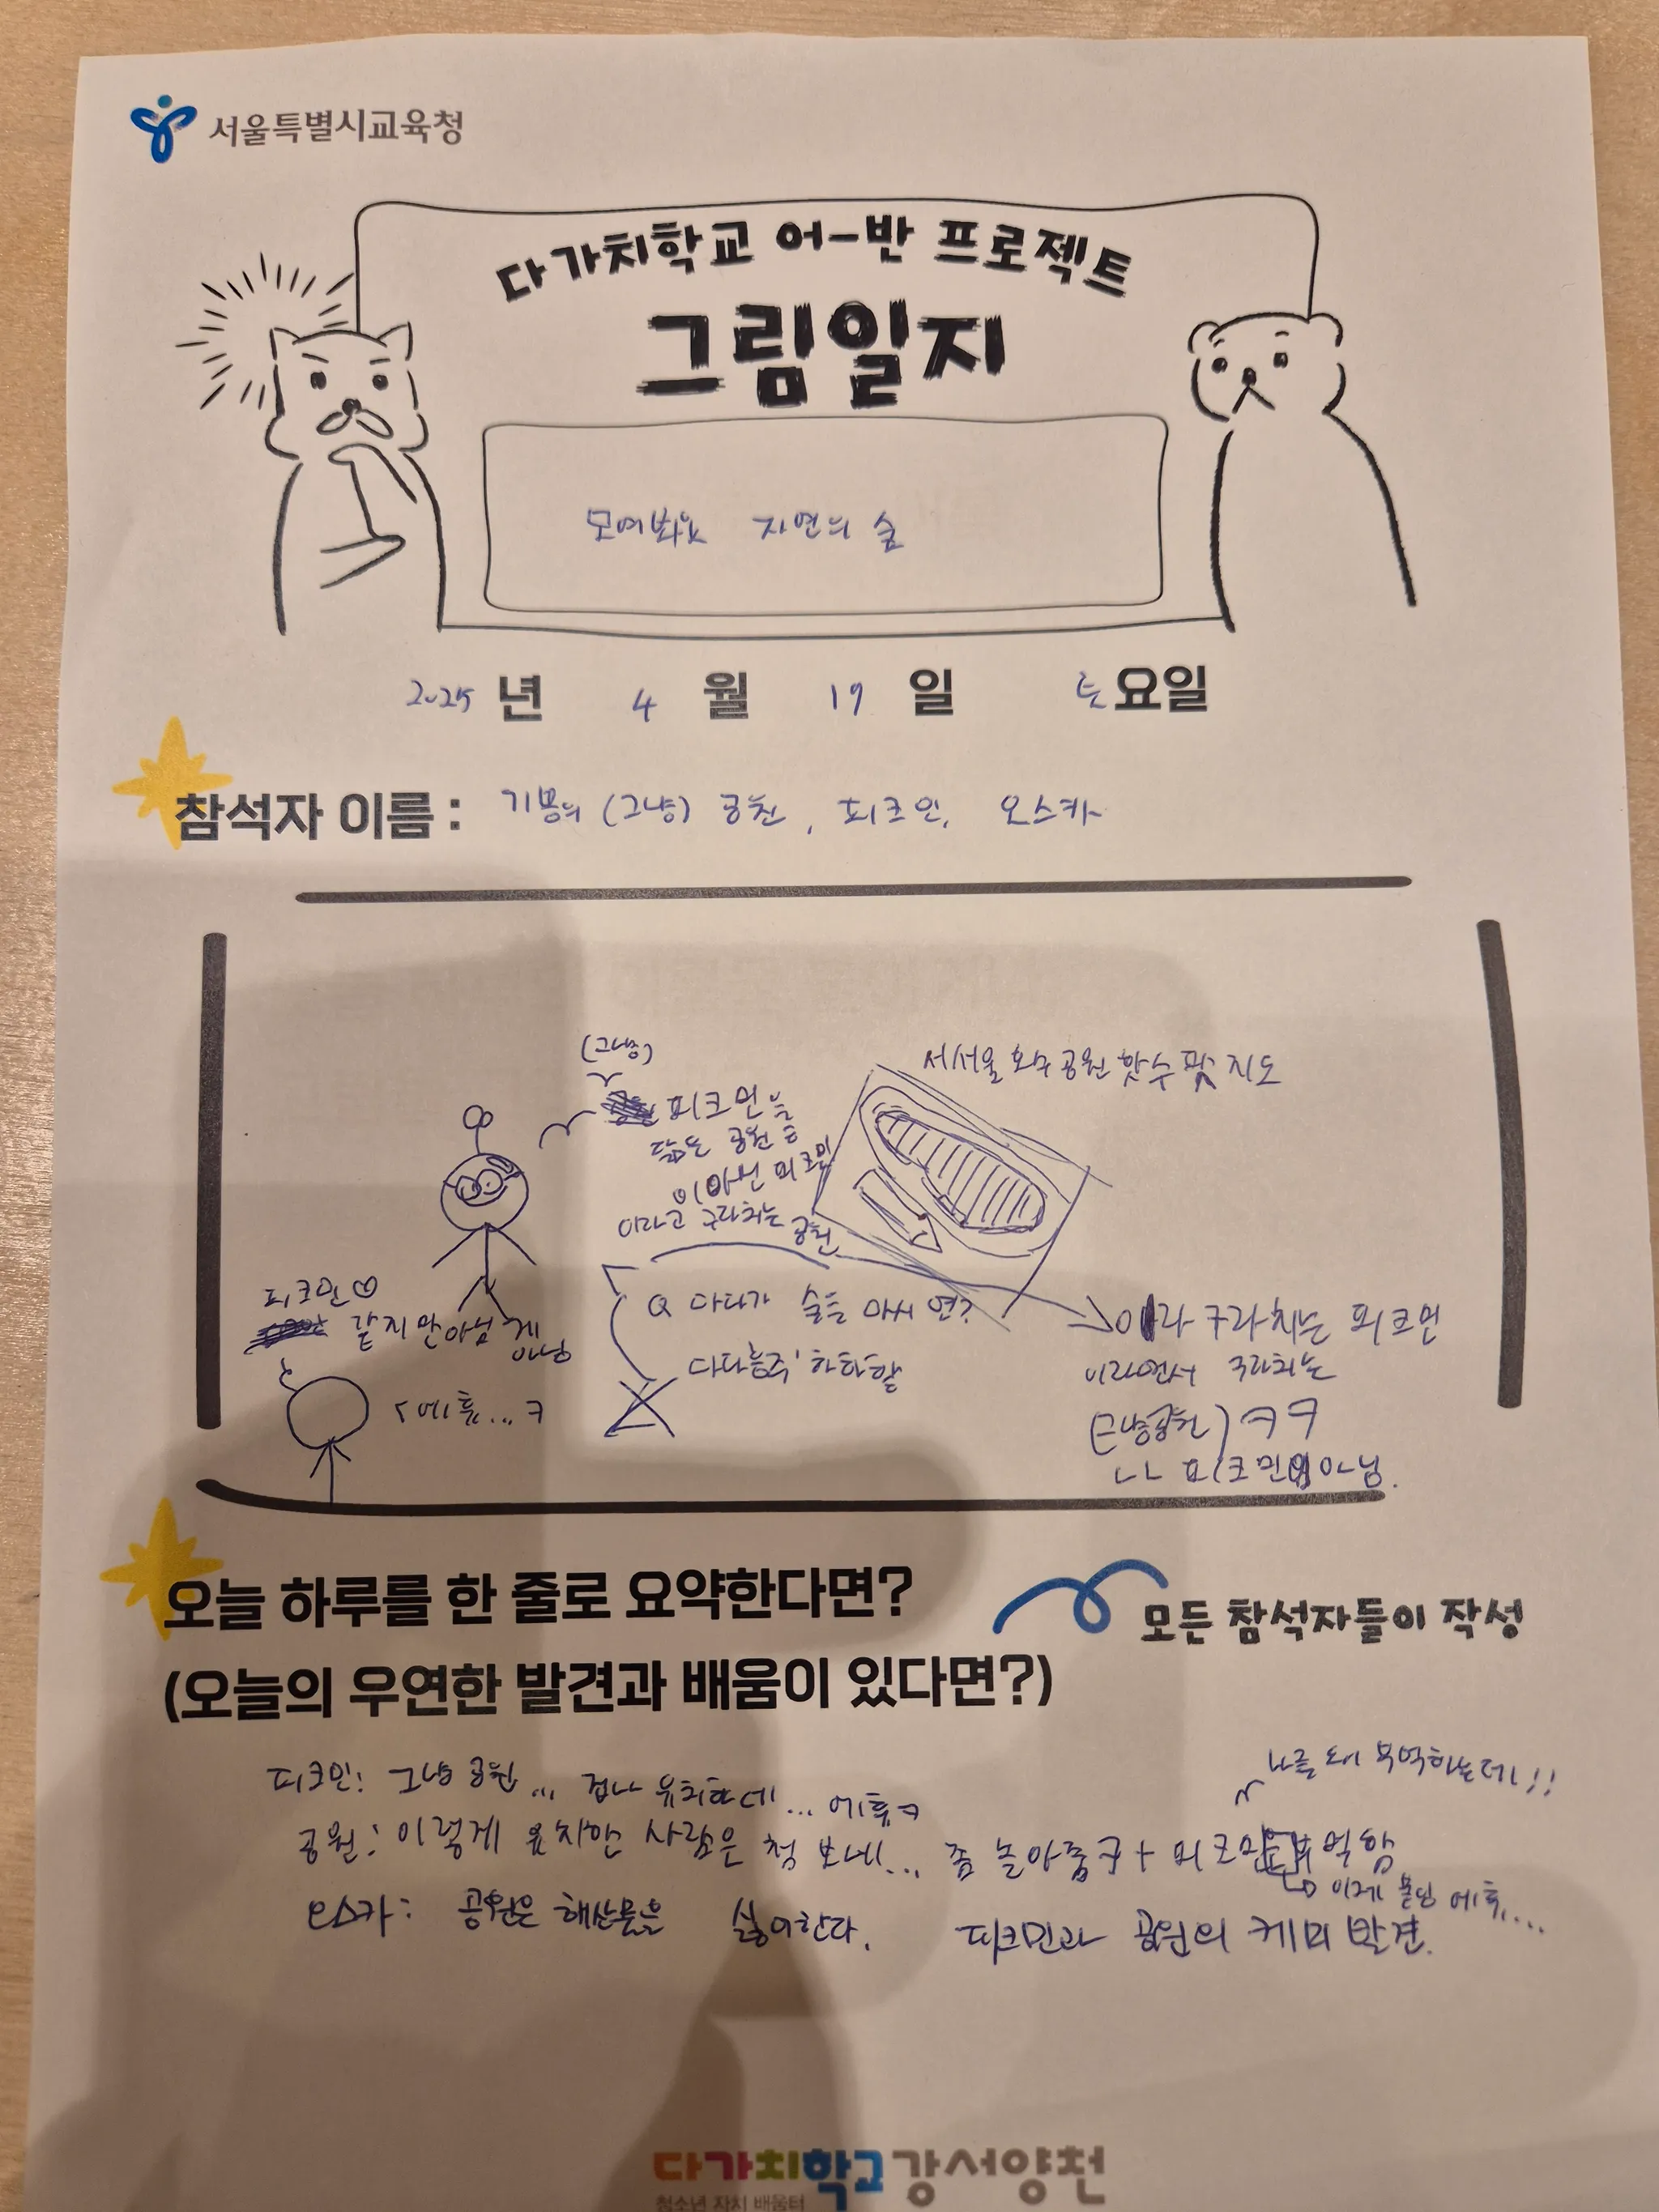 서울특별시교육청
다가치학교 어-반 프로젝트
그림일지
모여봐요 자연의 숲
2025년 4월 19일 토요일
참석자 이름 : 기몽의 (그냥) 공원, 피크민, 오스카
(그냥)
피크민을
닮은 공원
이라고 구라치는 공원
서서울 호수공원 핫수팟 지도
피크민
같지만 아님
에휴...ㅋ
Q 다다가 술을 마시면?
다다음주 하하핳
구라치는 피크민
이라면서 구라치는
(그냥공원) ㅋㅋ
나 피크민 아님.
오늘 하루를 한 줄로 요약한다면?
모든 참석자들이 작성
(오늘의 우연한 발견과 배움이 있다면?)
나를 왜 무역하는데!!
피크민: 그냥 공원... 겁나 유치한데... 에휴ㅋ
공원: 이렇게 유치한 사람은 첨 보네... 좀 놀아줌 ㅋ + 피크민 무역함
이제 봄 에휴....
오스카: 공원은 해산물을 싫어한다. 피크민과 공원의 케미 발견.
다가치학교강서양천
청소년 자치 배움터